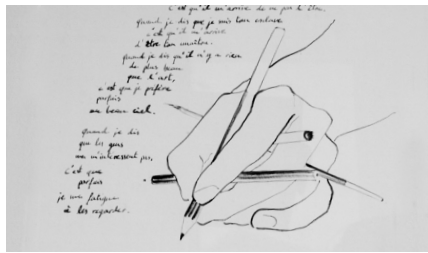 c'est qu'il m'arrive de ne pas l'être.
Quand je dis que je suis ton esclave
c'est qu'il m'arrive
d'être ton maître.
Quand je dis qu'il n'y a rien
de plus beau
que l'art,
c'est que je préfère
parfois
un beau ciel.
Quand je dis
que les gens
ne m'intéressent pas,
c'est que
parfois
je me fatigue
à les regarder.